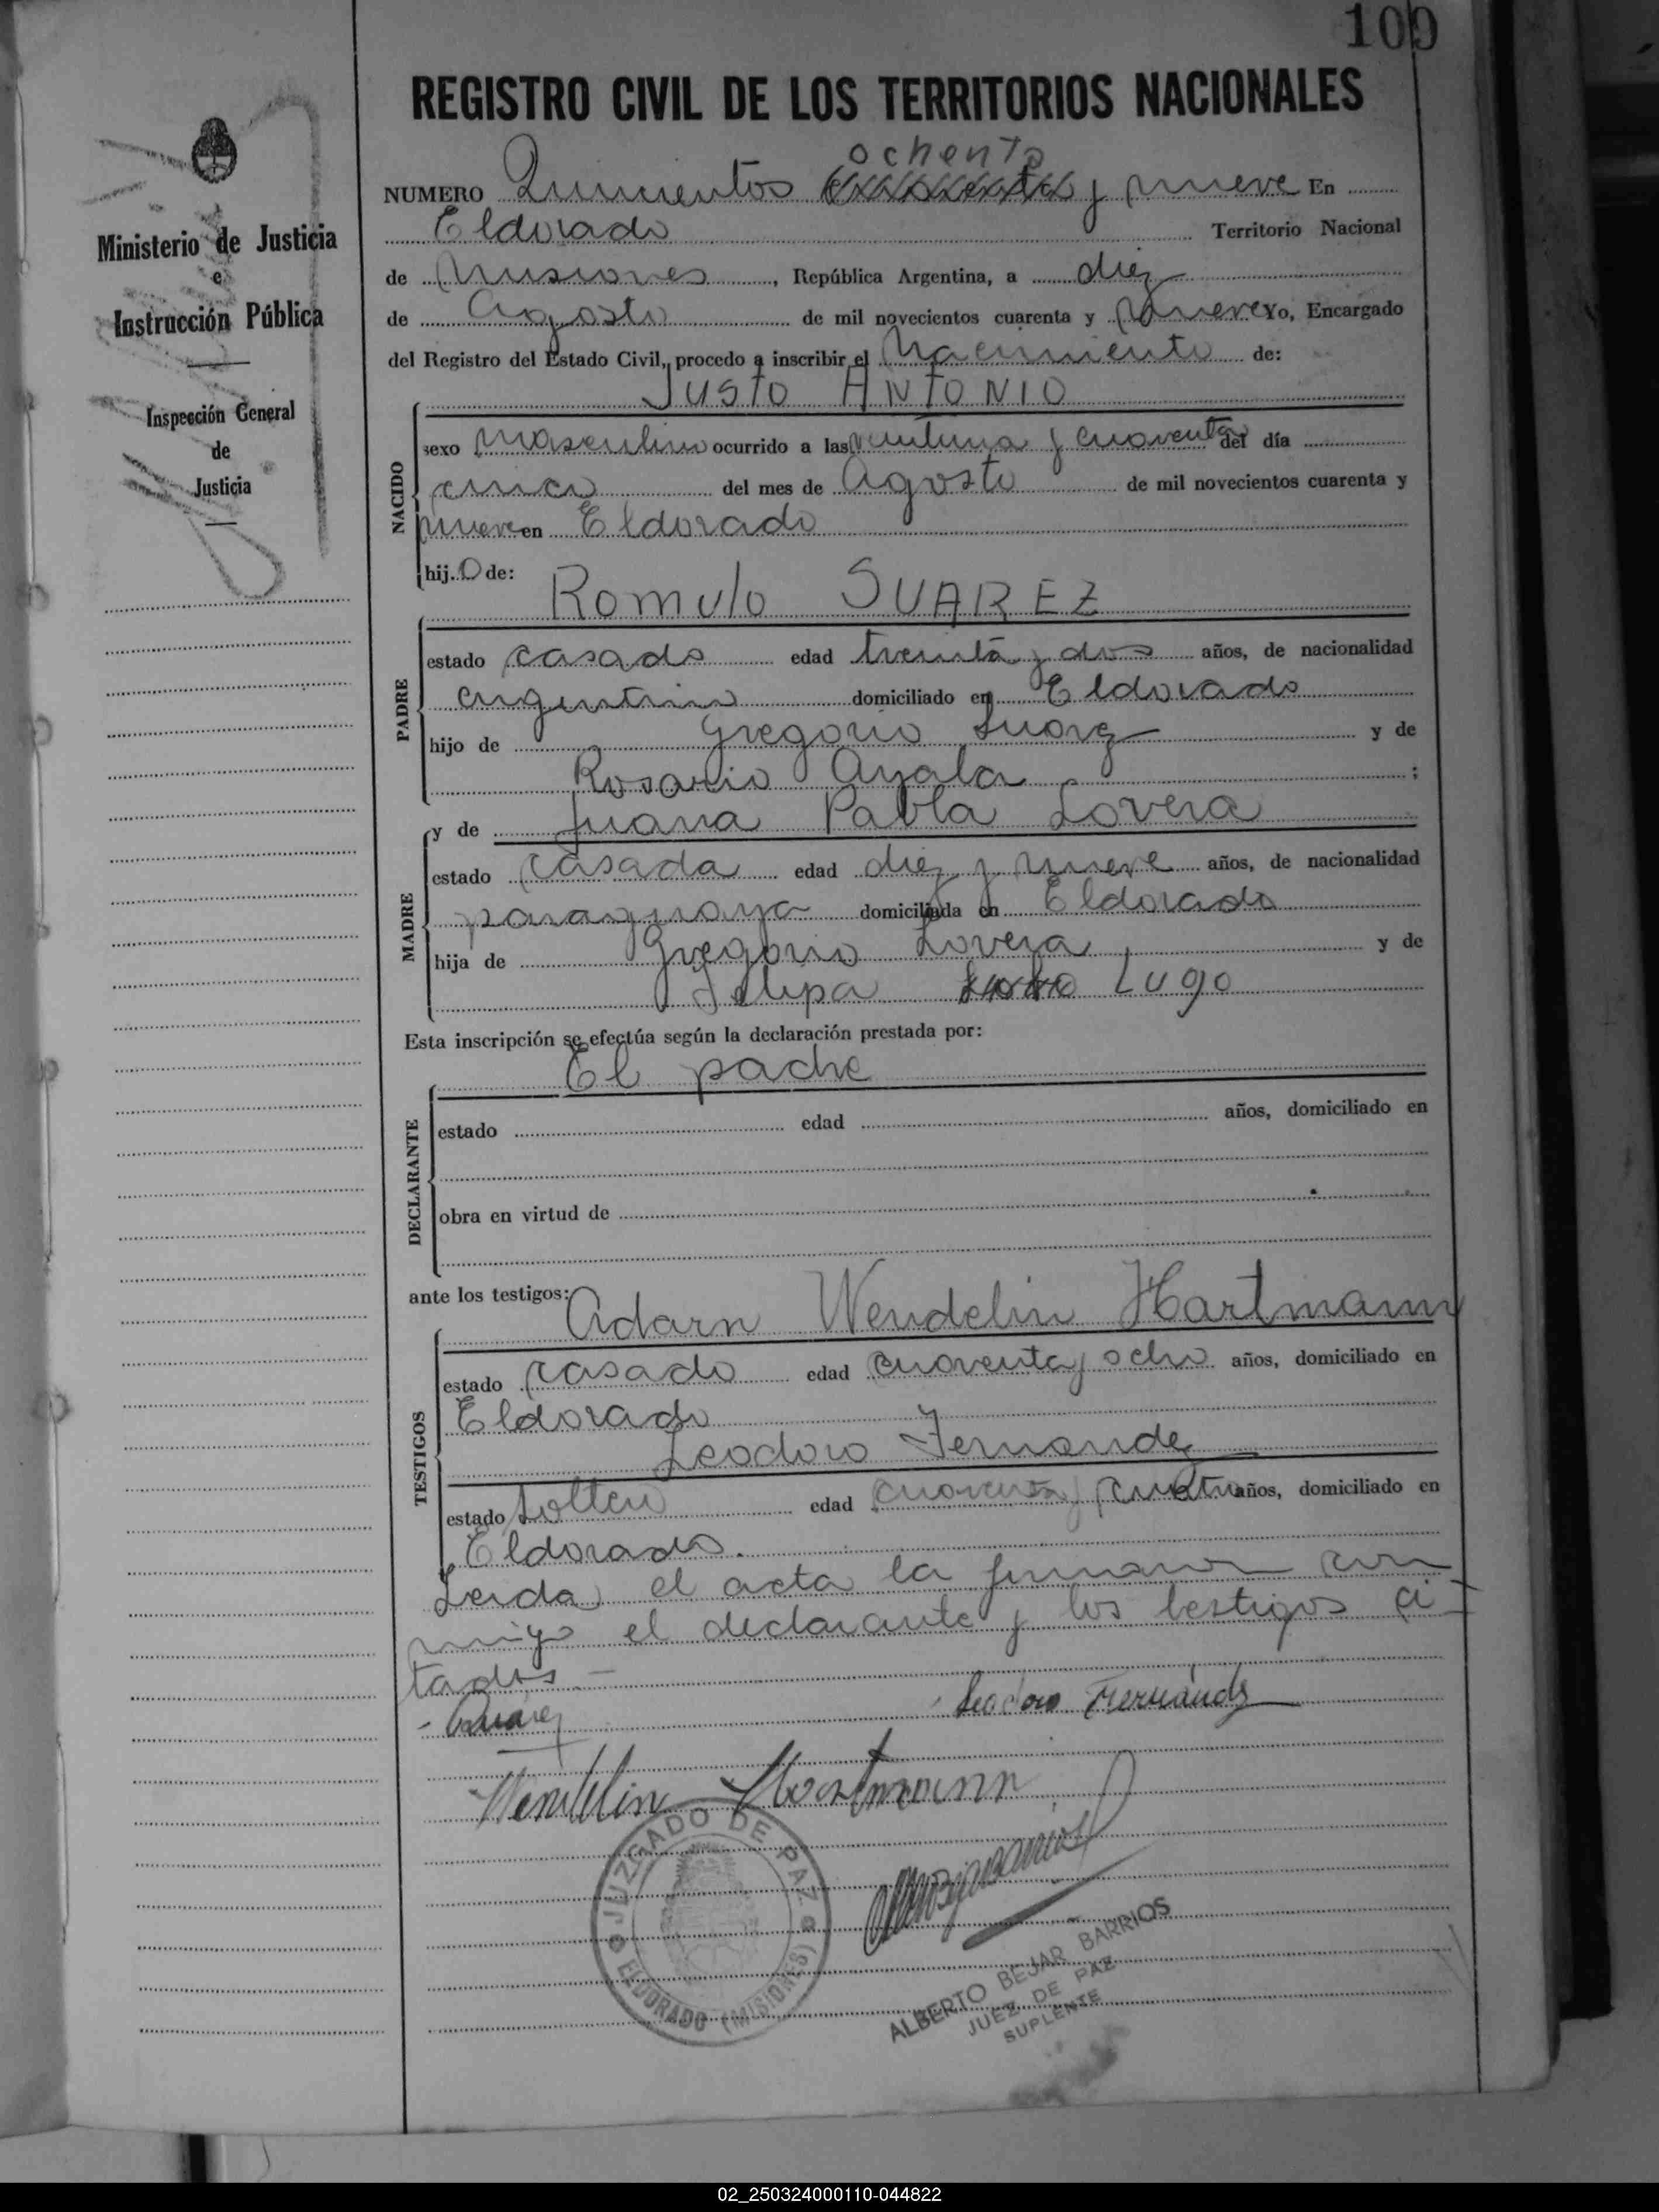 109
REGISTRO CIVIL DE LOS TERRITORIOS NACIONALES
Ministerio de Justicia
e
Instrucción Pública
Inspección General
de
Justicia
ochenta
NUMERO Quinientos y nueve En
Eldorado Territorio Nacional
de Misiones, República Argentina, a diez
de Agosto de mil novecientos cuarenta y nueve Yo, Encargado
del Registro del Estado Civil, procedo a inscribir el Nacimiento de:
JUSTO ANTONIO
NACIDO
sexo masculino ocurrido a las veintiuna y cuarenta del día
cinco del mes de Agosto de mil novecientos cuarenta y
nueve en Eldorado
hijo de:
Romulo SUAREZ
PADRE
estado casado edad treinta y dos años, de nacionalidad
argentino domiciliado en Eldorado
hijo de Gregorio Suarez y de
Rosario Ayala ;
y de Juana Pabla Lovera
MADRE
estado casada edad diez y nueve años, de nacionalidad
paraguaya domiciliada en Eldorado
hija de Gregorio Lovera y de
Felipa Lugo
Esta inscripción se efectúa según la declaración prestada por:
El padre
DECLARANTE
estado edad años, domiciliado en
obra en virtud de
ante los testigos:
Adam Wendelin Hartmann
TESTIGOS
estado casado edad cuarenta y ocho años, domiciliado en
Eldorado
Leodoro Fernandez
estado soltero edad cuarenta y cuatro años, domiciliado en
Eldorado.
Leida el acta la firmaron con
migo el declarante y los testigos ci-
tados. -
Suárez
Leodoro Fernández
Wendelin Hartmann
JUZGADO DE PAZ
ELDORADO (MISIONES)
ALBERTO BEJAR BARRIOS
JUEZ DE PAZ
SUPLENTE
02_250324000110-044822